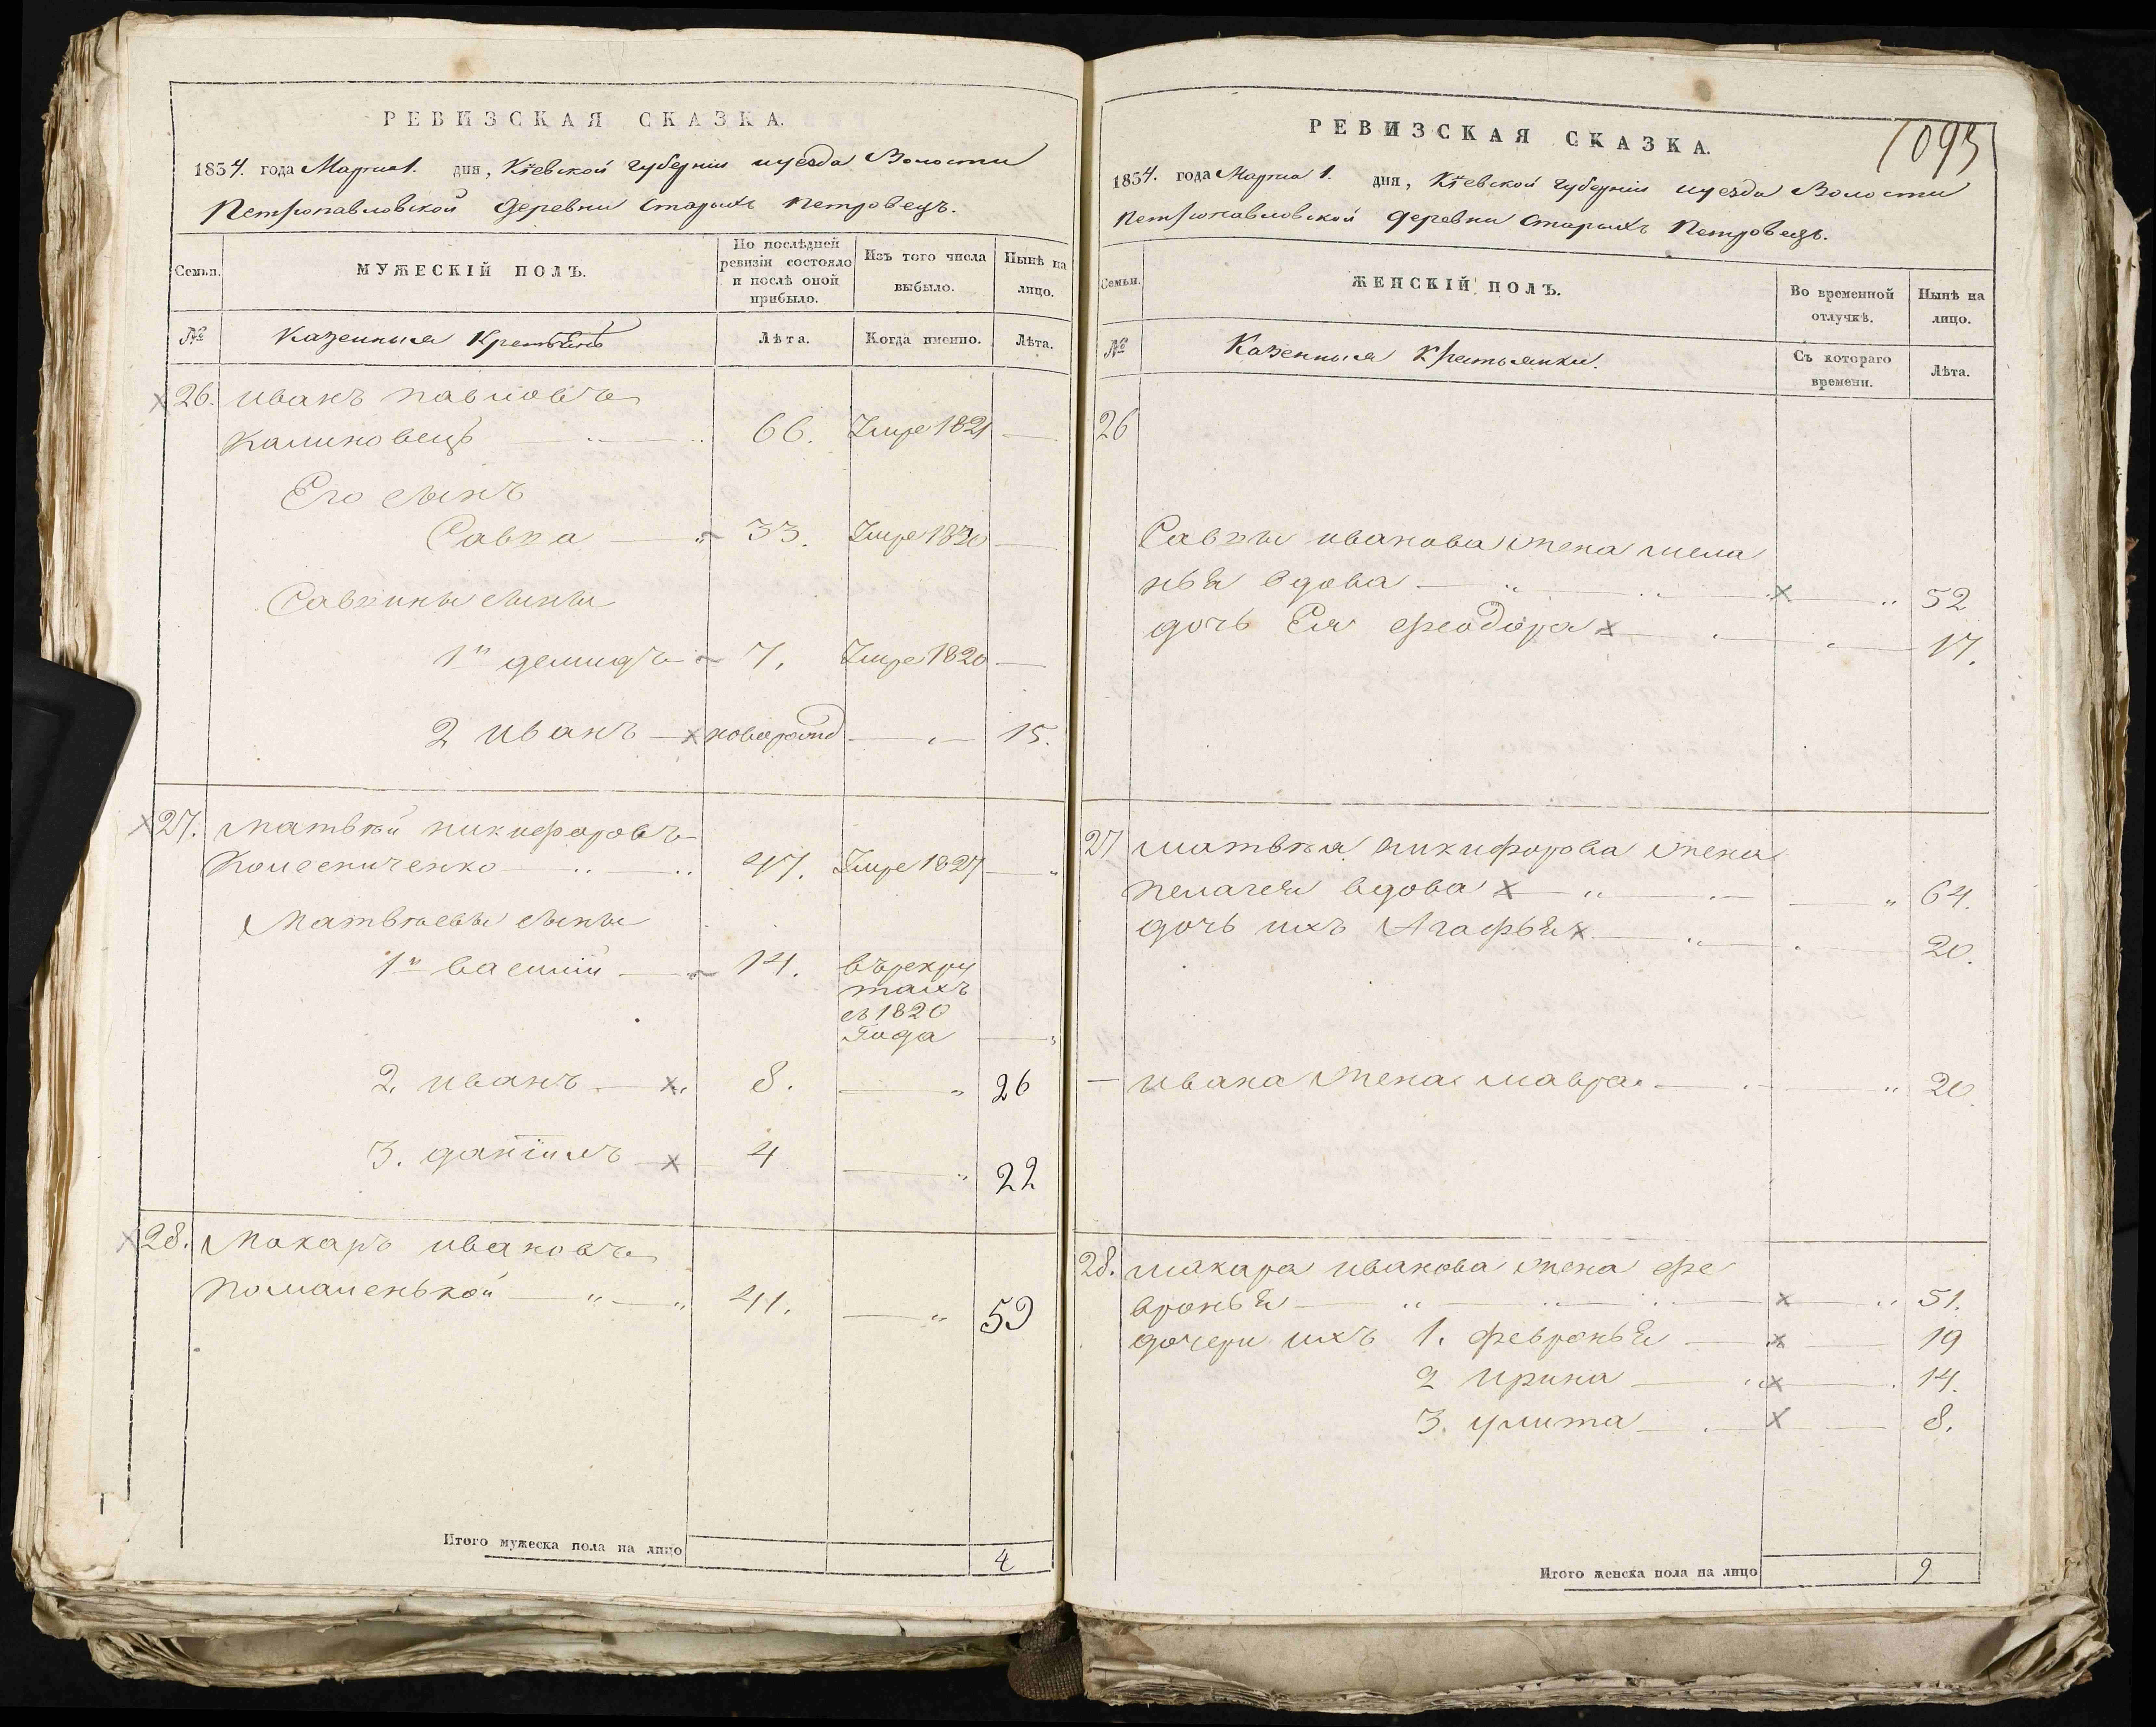 РЕВИЗСКАЯ СКАЗКА.
1854. года Марта 1. дня, Кіевской губерніи и уезда Волости
Петропавловской деревни Старыхъ Петровецъ.
Семьи.
МУЖЕСКІЙ ПОЛЪ.
По послѣдней ревизіи состояло и послѣ оной прибыло.
Изъ того числа выбыло.
Нынѣ на лицо.
№
Казенныя
Лѣта.
Когда именно.
Лѣта.
26. иванъ павловъ
Калиновецъ 66. 1821
Его сынъ
Савка 33. 1820
Савкины сыны
1й демидъ 7. 1820
2 иванъ новорожд 15.
27. матвѣй никифоровъ
Колесниченко 47. 1827
Матвѣевы сыны
1й василій 14. въ рекру
тахъ
съ 1820
Года
2. иванъ 8. 26
3. даніилъ 4 22
28. Макаръ ивановъ
41. 59
Итого мужеска пола на лицо 4
РЕВИЗСКАЯ СКАЗКА.
1093
1854. года Марта 1. дня, Кіевской губерніи и уезда Волости
Петропавловской деревни Старыхъ Петровецъ.
Семьи.
ЖЕНСКІЙ ПОЛЪ.
Во временной отлучкѣ.
Нынѣ на лицо.
№
Казенныя Крестьянки.
Съ котораго времени.
Лѣта.
26
Савки иванова жена мела
нья вдова 52
дочь Ея феодора 17.
27 матвѣя никифорова жена
пелагея вдова 64.
дочь ихъ Агафья 20.
ивана жена мавра 20.
28. макара иванова жена фе
вронья 51.
дочери ихъ 1. февронья 19
2 ирина 14.
3. улита 8.
Итого женска пола на лицо 9